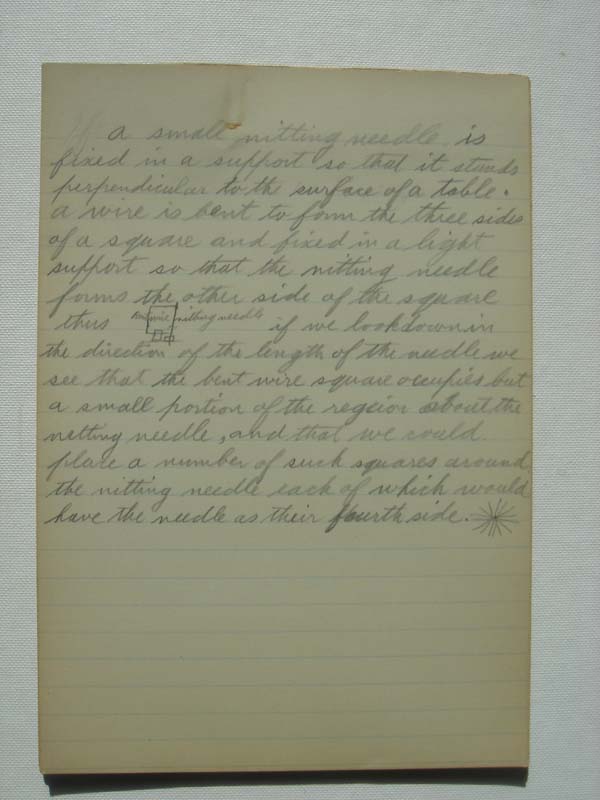 If a small nitting needle is
fixed in a support so that it stands
perpendicular to the surface of a table.
a wire is bent to form the three sides
of a square and fixed in a light
support so that the nitting needle
forms the other side of the square
thus wire nitting needle if we look down in
the direction of the length of the needle we
see that the bent wire square occupies but
a small portion of the region about the
netting needle, and that we could
place a number of such squares around
the nitting needle each of which would
have the needle as their fourth side.